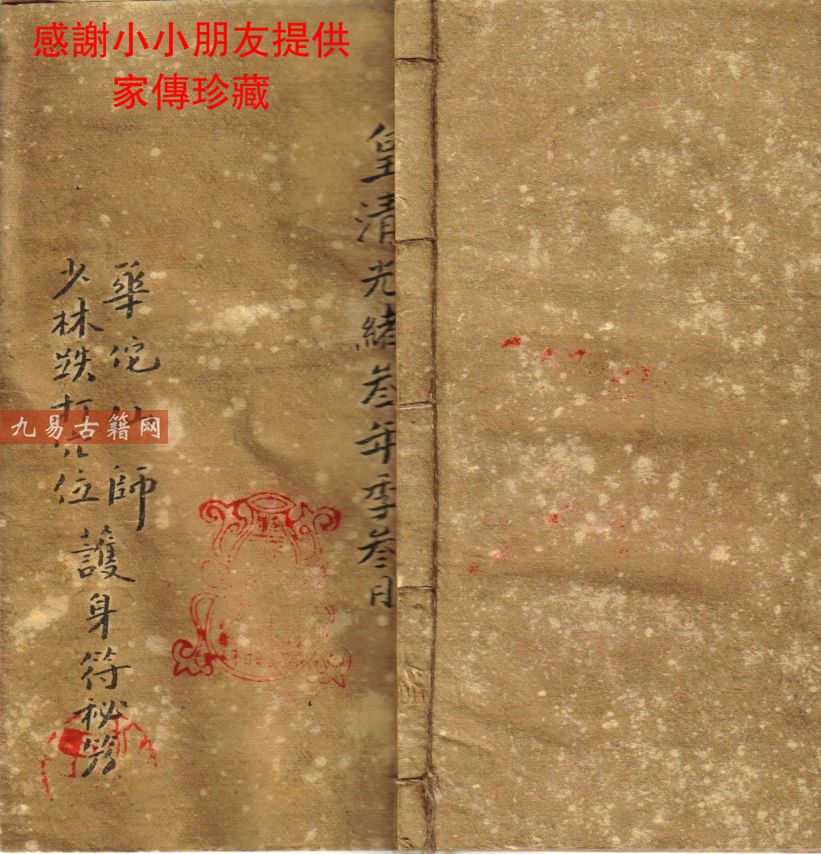 感謝小小朋友提供
家傳珍藏
皇清光緒叁年季叁月
華佗仙師
少林跌打穴位
護身符秘
九易古籍网